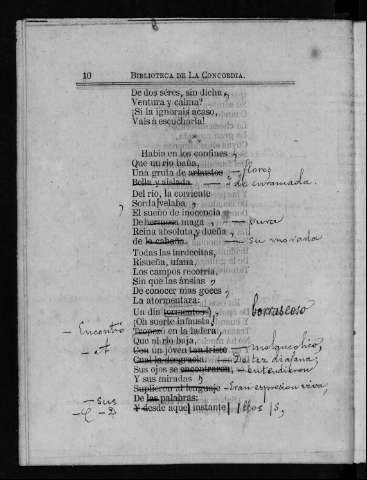 10 BIBLIOTECA DE LA CONCORDIA.
De dos séres, sin dicha,
Ventura y calma?
¡Si la ignorais acaso,
Vais a escucharla!
Habia en los confines,
Que un rio baña,
Una gruta de arbustos — flores
Bella y aislada — I de enramada.
Del rio, la corriente
Sorda velaba,
El sueño de inocencia
De hermosa maga — pura
Reina absoluta y dueña,
de la cabaña. — su morada
Todas las tardecitas,
Risueña, ufana,
Los campos recorria,
Sin que las ánsias
De conocer mas goces,
La atormentara:
Un dia tormentoso, borrascoso
¡Oh suerte infausta!
— Encontró Tropezó en la ladera,
— A Que al rio baja,
Con un joven tan triste — melancólico,
Cual la desgracia. De tez diafana;
Sus ojos se encontraron, — entendieron
Y sus miradas,
Suplieron al lenguaje — Eran espresion viva,
— sus De las palabras:
Y desde aquel instante